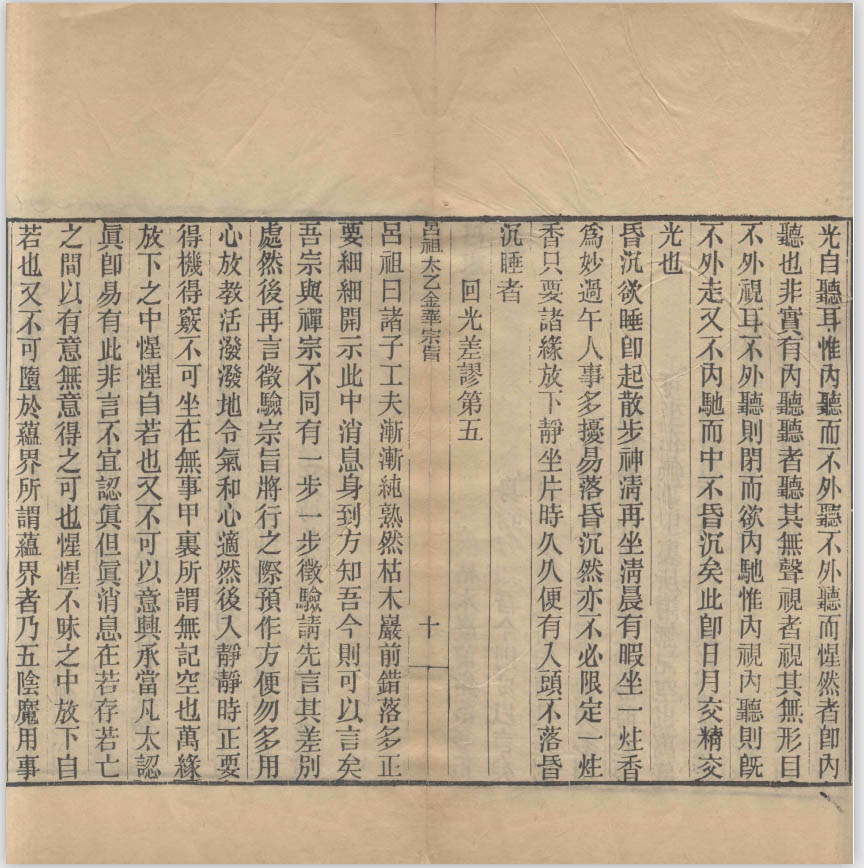 光自聽耳惟內聽而不外聽不外聽而惺然者卽內
聽也非實有內聽聽者聽其無聲視者視其無形目
不外視耳不外聽則閉而欲內馳惟內視內聽則旣
不外走又不內馳而中不昏沉矣此卽日月交精交
光也
昏沉欲睡卽起散步神淸再坐淸晨有暇坐一炷香
爲妙過午人事多擾易落昏沉然亦不必限定一炷
香只要諸緣放下靜坐片時久久便有入頭不落昏
沉睡者
回光差謬第五
呂祖太乙金華宗旨
十
呂祖曰諸子工夫漸漸純熟然枯木巖前錯落多正
要細細開示此中消息身到方知吾今則可以言矣
吾宗與禪宗不同有一步一步徵驗請先言其差別
處然後再言徵驗宗旨將行之際預作方便勿多用
心放教活潑潑地令氣和心適然後入靜靜時正要
得機得竅不可坐在無事甲裏所謂無記空也萬緣
放下之中惺惺自若也又不可以意興承當凡太認
眞卽易有此非言不宜認眞但眞消息在若存若亡
之間以有意無意得之可也惺惺不昧之中放下自
若也又不可墮於蘊界所謂蘊界者乃五陰魔用事